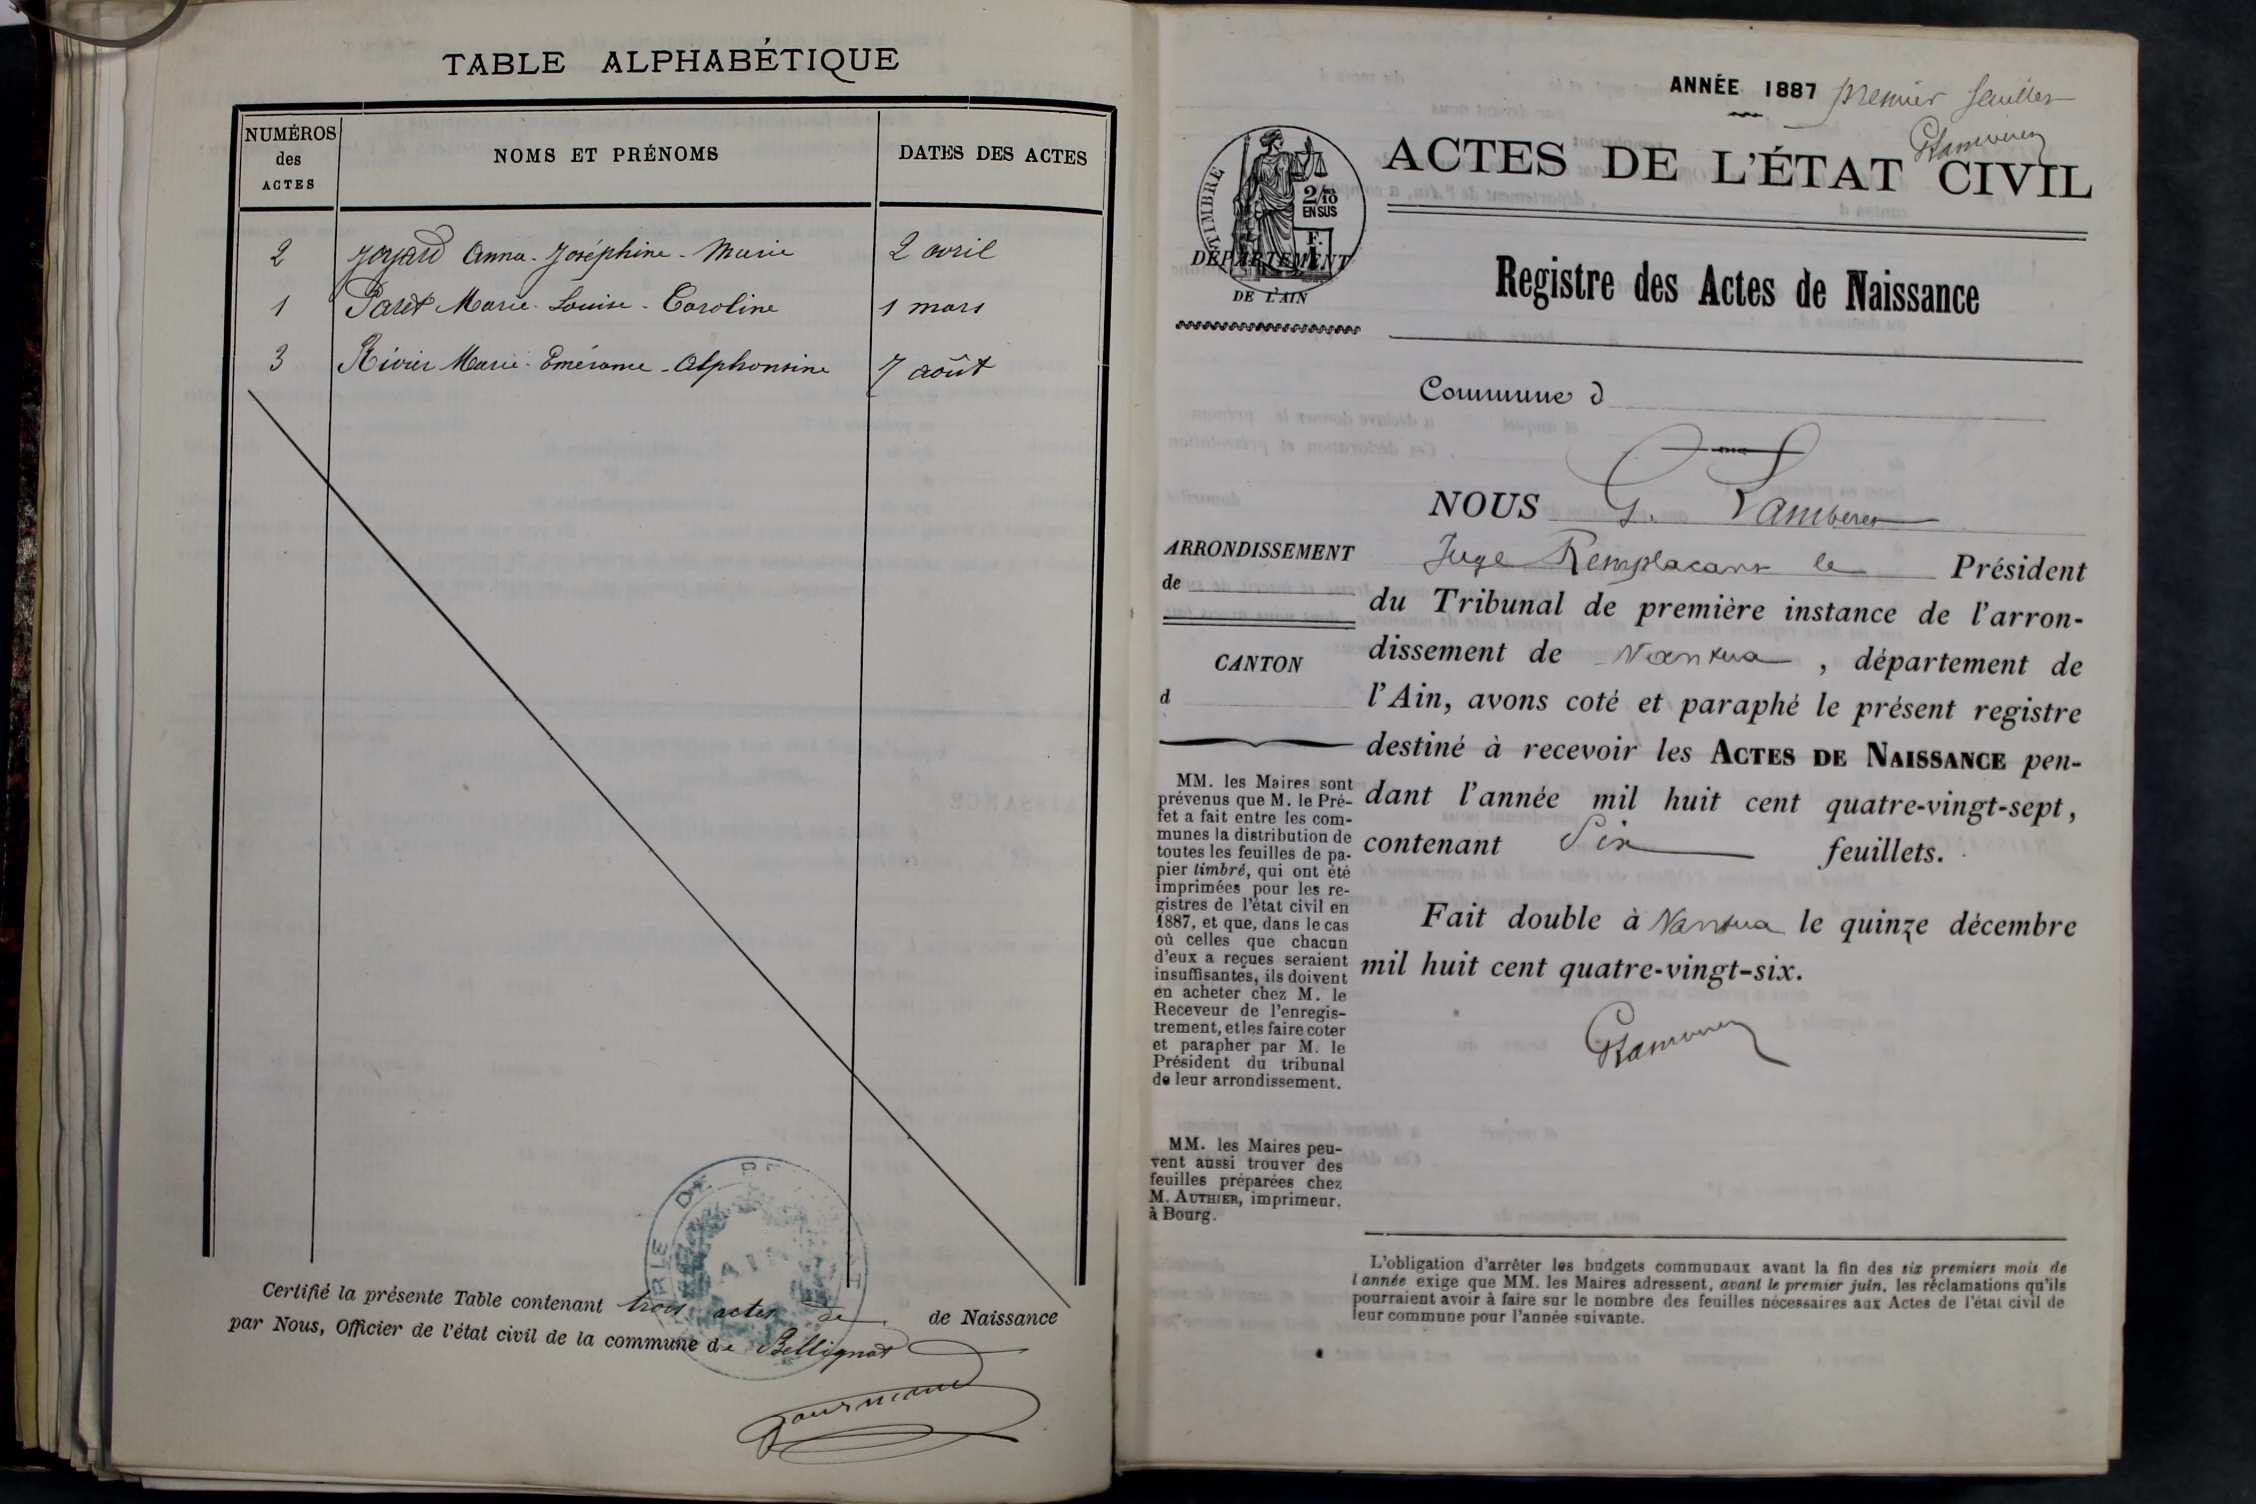 TABLE ALPHABÉTIQUE
NUMÉROS
des
ACTES
NOMS ET PRÉNOMS
DATES DES ACTES
2 Joyard Anna-Joséphine-Marie 2 avril
1 Paret Marie-Louise-Caroline 1 mars
3 Rivier Marie-Emérance-Alphonsine 7 août
MAIRIE DE
AIN
Certifié la présente Table contenant trois actes de de Naissance
par Nous, Officier de l'état civil de la commune de Bellignat
ANNÉE 1887 premier feuillet
TIMBRE
2/10
EN SUS
F.
DÉPARTEMENT
DE L'AIN
ACTES DE L'ÉTAT CIVIL
Registre des Actes de Naissance
Commune d
NOUS G.
Juge Remplaçant le Président
du Tribunal de première instance de l'arron-
dissement de Nantua, département de
l'Ain, avons coté et paraphé le présent registre
destiné à recevoir les ACTES DE NAISSANCE pen-
dant l'année mil huit cent quatre-vingt-sept,
contenant Six feuillets.
Fait double à Nantua le quinze décembre
mil huit cent quatre-vingt-six.
ARRONDISSEMENT
de
CANTON
d
MM. les Maires sont
prévenus que M. le Pré-
fet a fait entre les com-
munes la distribution de
toutes les feuilles de pa-
pier timbré, qui ont été
imprimées pour les re-
gistres de l'état civil en
1887, et que, dans le cas
où celles que chacun
d'eux a reçues seraient
insuffisantes, ils doivent
en acheter chez M. le
Receveur de l'enregis-
trement, et les faire coter
et parapher par M. le
Président du tribunal
de leur arrondissement.
MM. les Maires peu-
vent aussi trouver des
feuilles préparées chez
M. AUTHIER, imprimeur,
à Bourg.
L'obligation d'arrêter les budgets communaux avant la fin des six premiers mois de
l'année exige que MM. les Maires adressent, avant le premier juin, les réclamations qu'ils
pourraient avoir à faire sur le nombre des feuilles nécessaires aux Actes de l'état civil de
leur commune pour l'année suivante.